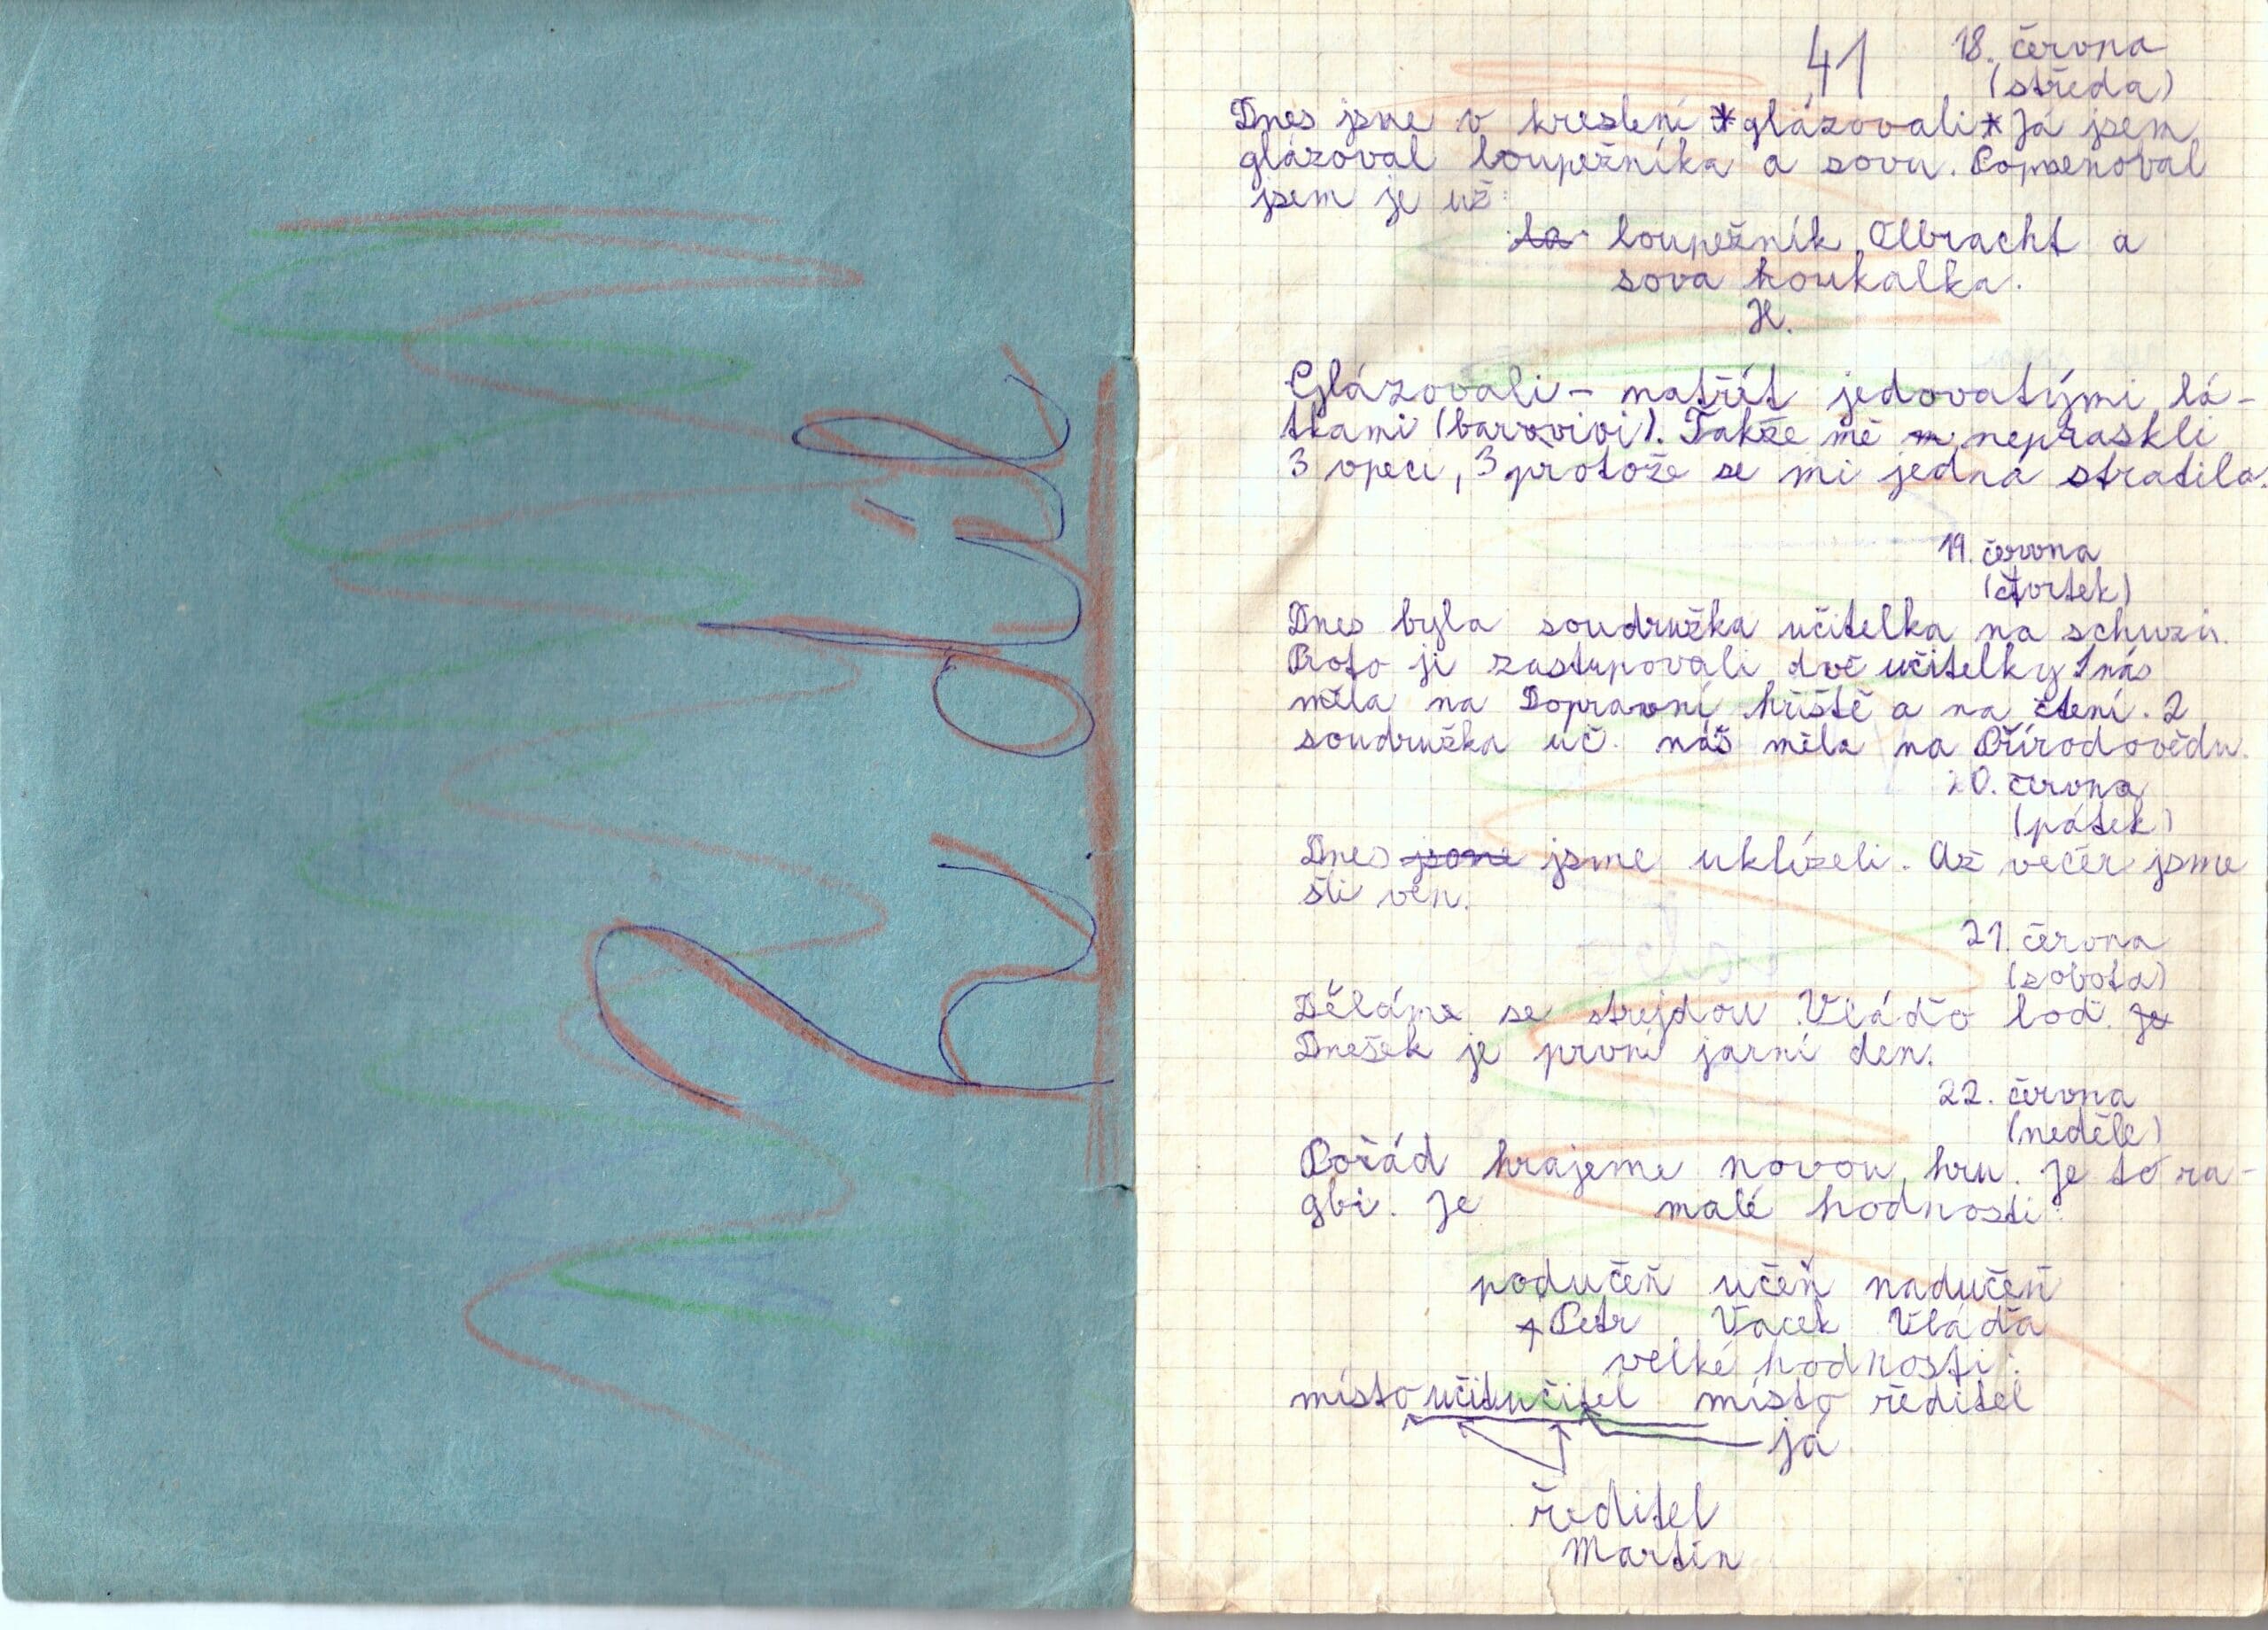 2. díl
41 18. června
(středa)
Dnes jsme v kreslení *glázovali* Já jsem
glázoval loupežníka a sovu. Pojmenoval
jsem je už:
loupežník Olbracht a
sova houkalka.
H.
Glázovali - natřít jedovatými lá-
tkami (barvivi). Takže mě nepraskli
3 vpeci, 3 protože se mi jedna stratila.
19. června
(čtvrtek)
Dnes byla soudružka učitelka na schuzu.
Proto ji zastupovali dvě učitelky 1 nás
měla na Dopravní hřiště a na čtení. 2
soudružka uč. náš měla na Přírodovědu.
20. června
(pátek)
Dnes jsme uklízeli. Až večer jsme
šli ven.
21. června
(sobota)
Děláme se strejdou Vláďo loď. Je
Dnešek je první jarní den.
22. června
(neděle)
Pořád hrajeme novou hru. Je to ra-
gbi. Je malé hodnosti:
podučeň učeň nadučeň
Petr Vacek Vláďa
velké hodnosti:
místo učitel místo ředitel
já
ředitel
Martin